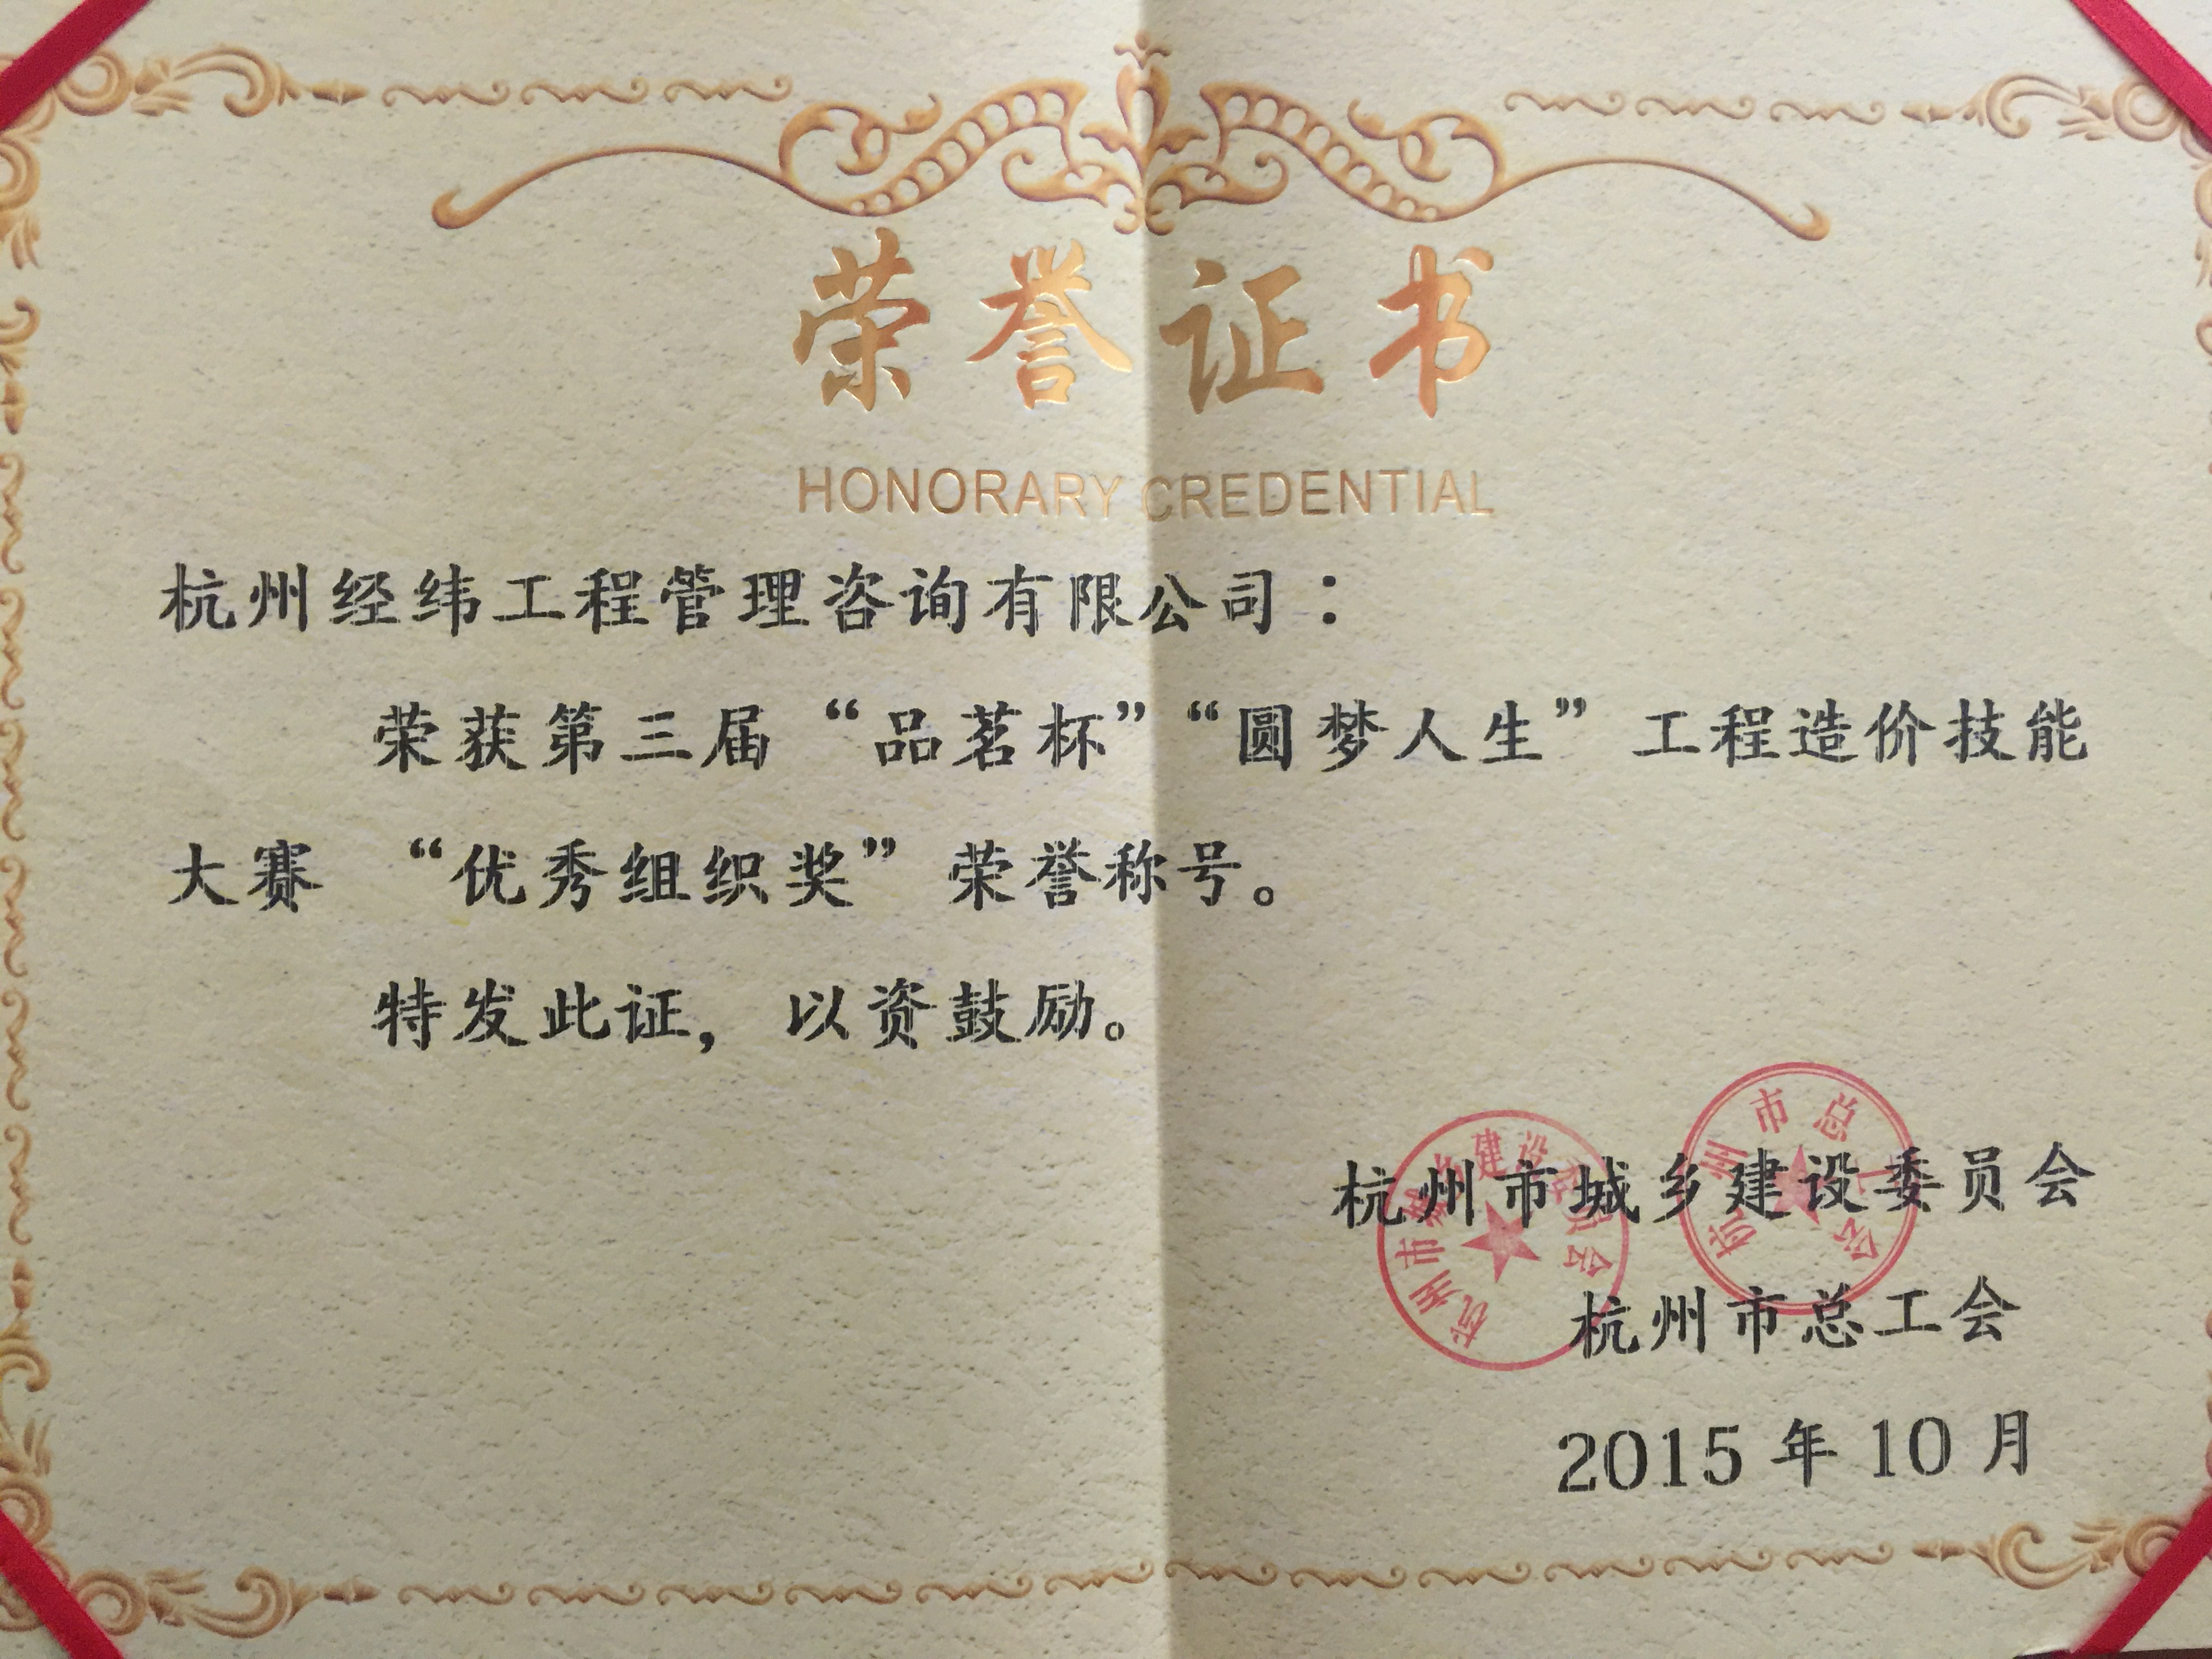 荣誉证书
HONORARY CREDENTIAL
杭州经纬工程管理咨询有限公司：
荣获第三届“品茗杯”“圆梦人生”工程造价技能
大赛 “优秀组织奖”荣誉称号。
特发此证，以资鼓励。
杭州市城乡建设委员会
杭州市总工会
2015年10月